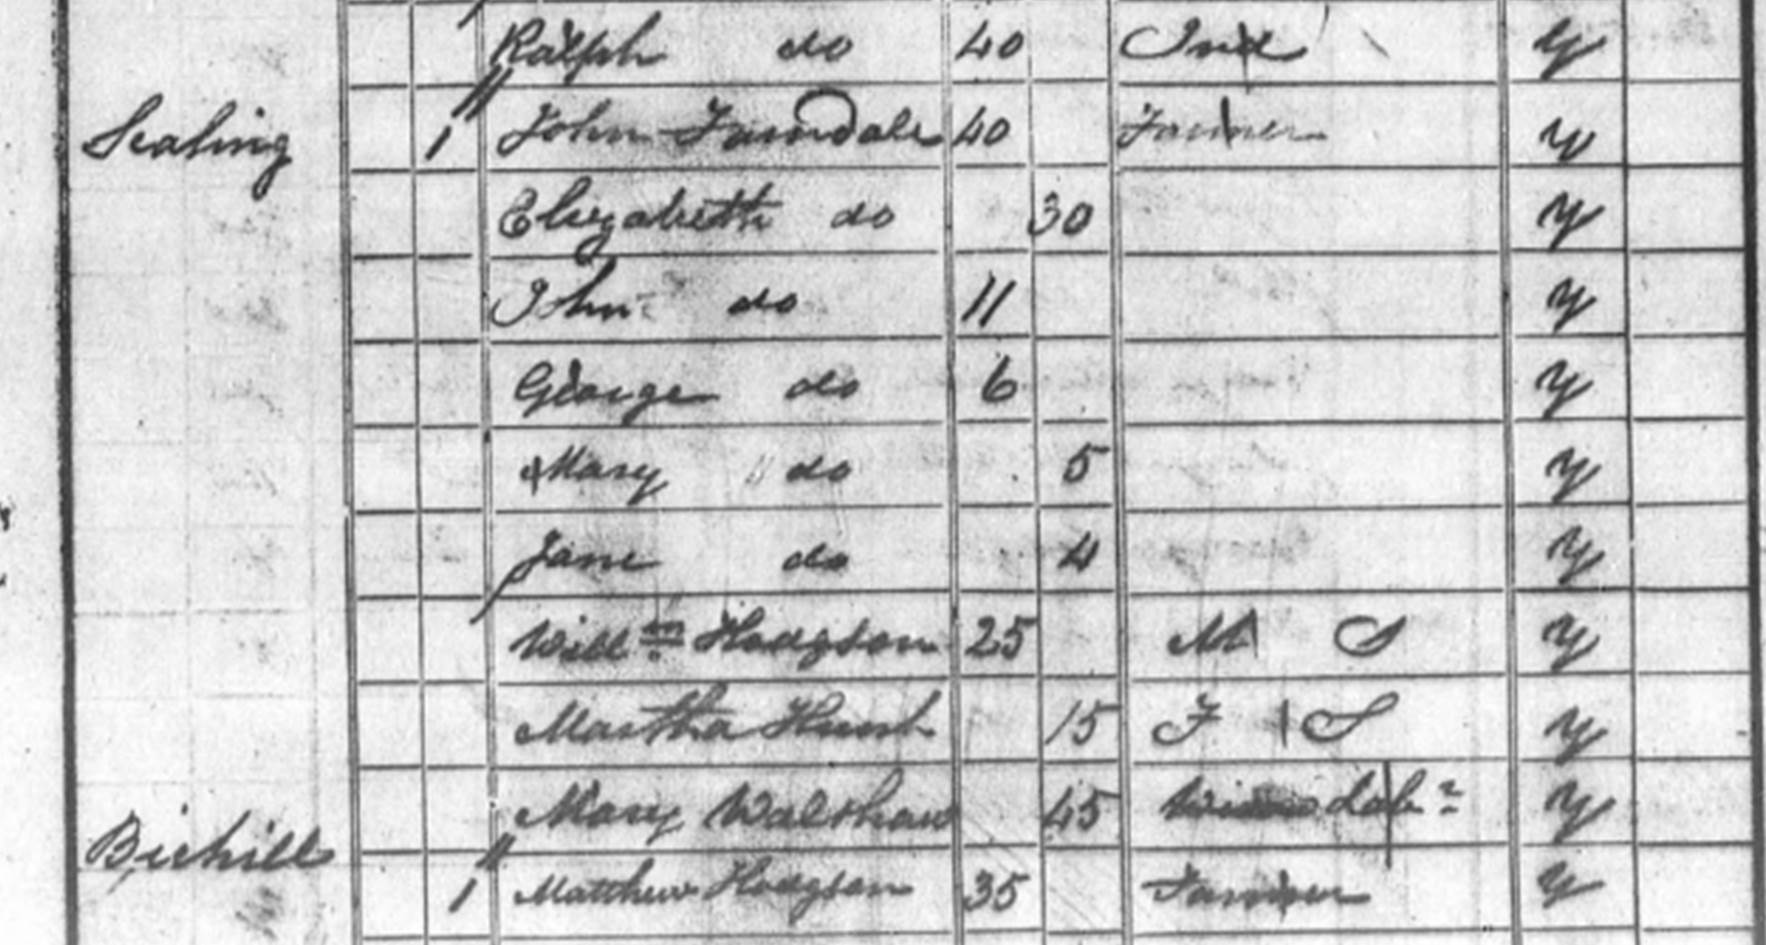 Ralph do 40 Ind y
Scaling 1 John Farndale 40 Farmer y
Elizabeth do 30 y
John do 11 y
George do 6 y
Mary do 5 y
Jane do 4 y
Willm Hodgson 25 M S y
Martha 15 F S y
Mary 45 labr y
1 Matthew Hodgson 35 Farmer y